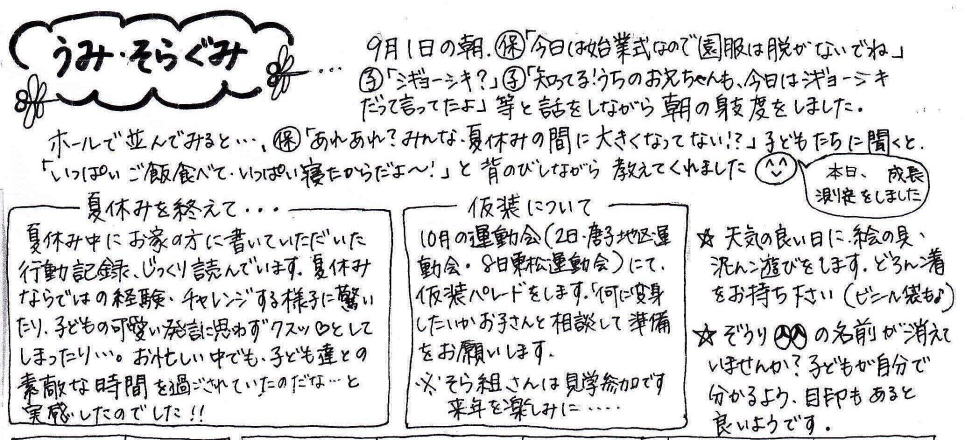 うみ・そらぐみ
… 9月1日の朝、㋭「今日は始業式なので園服は脱がないでね」
㋙「シギョーシキ?」㋙「知ってる!うちのお兄ちゃんも、今日はシギョーシキ
だって言ってたよ」等と話をしながら朝の身支度をしました。
ホールで並んでみると…、保「あれあれ?みんな、夏休みの間に大きくなってない!?」子どもたちに聞くと、
「いっぱいご飯食べて・いっぱい寝たからだよ〜!」と背のびしながら教えてくれました
本日、成長
測定をしました
夏休みを終えて・・・
夏休み中にお家の方に書いていただいた
行動記録、じっくり読んでいます。夏休み
ならではの経験・チャレンジする様子に驚い
たり、子どもの可愛い発言に思わずクスッ♡として
しまったり…。お忙しい中でも、子ども達との
素敵な時間を過ごされていたのだな…と
実感したのでした!!
仮装について
10月の運動会(2日・唐子地区運
動会・8日東松運動会)にて、
仮装パレードをします。「何に変身
したいかお子さんと相談して準備
をお願いします。
※そら組さんは見学参加です
来年を楽しみに・・・・
☆天気の良い日に、絵の具、
泥んこ遊びをします。どろんこ着
をお持ち下さい(ビニール袋も♪)
☆ぞうりの名前が消えて
いませんか?子どもが自分で
分かるよう、目印もあると
良いようです。